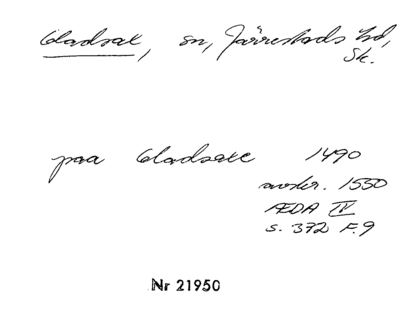 Gladsax, sn, Järrestads hd,
Sk.
paa Gladsaxe 1490
avskr. 1550
ÆDA IV
s. 372 F. 9
Nr 21950